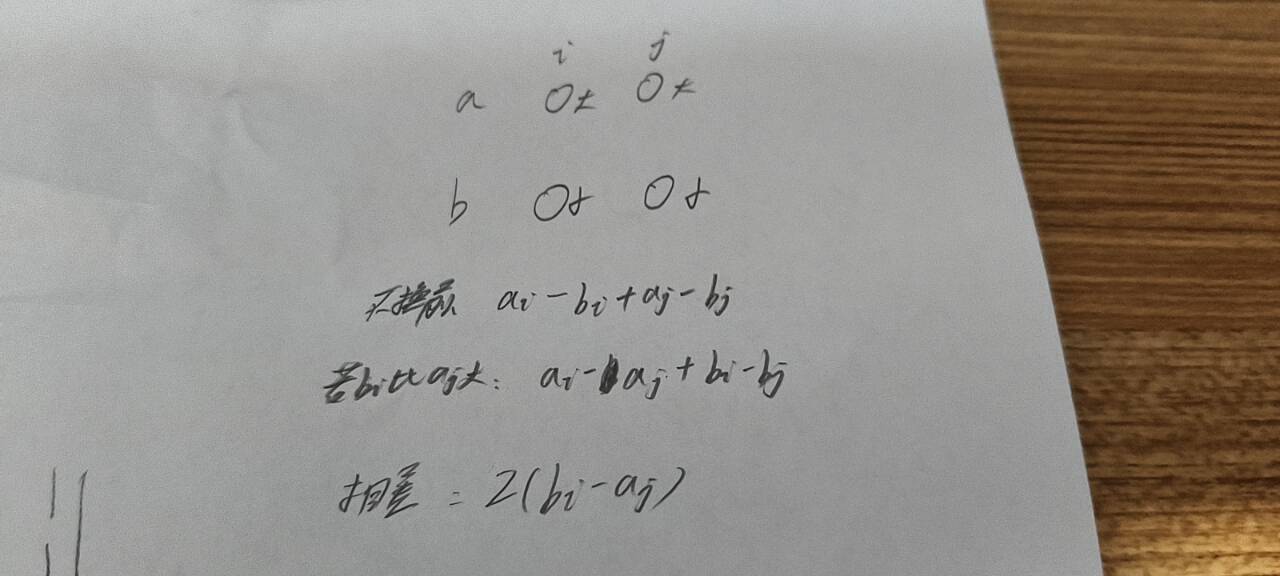 i j
a 大 大
b 小 小
交换前 ai-bi+aj-bj
若bi比aj大: ai-aj+bi-bj
相差 = 2(bi-aj)